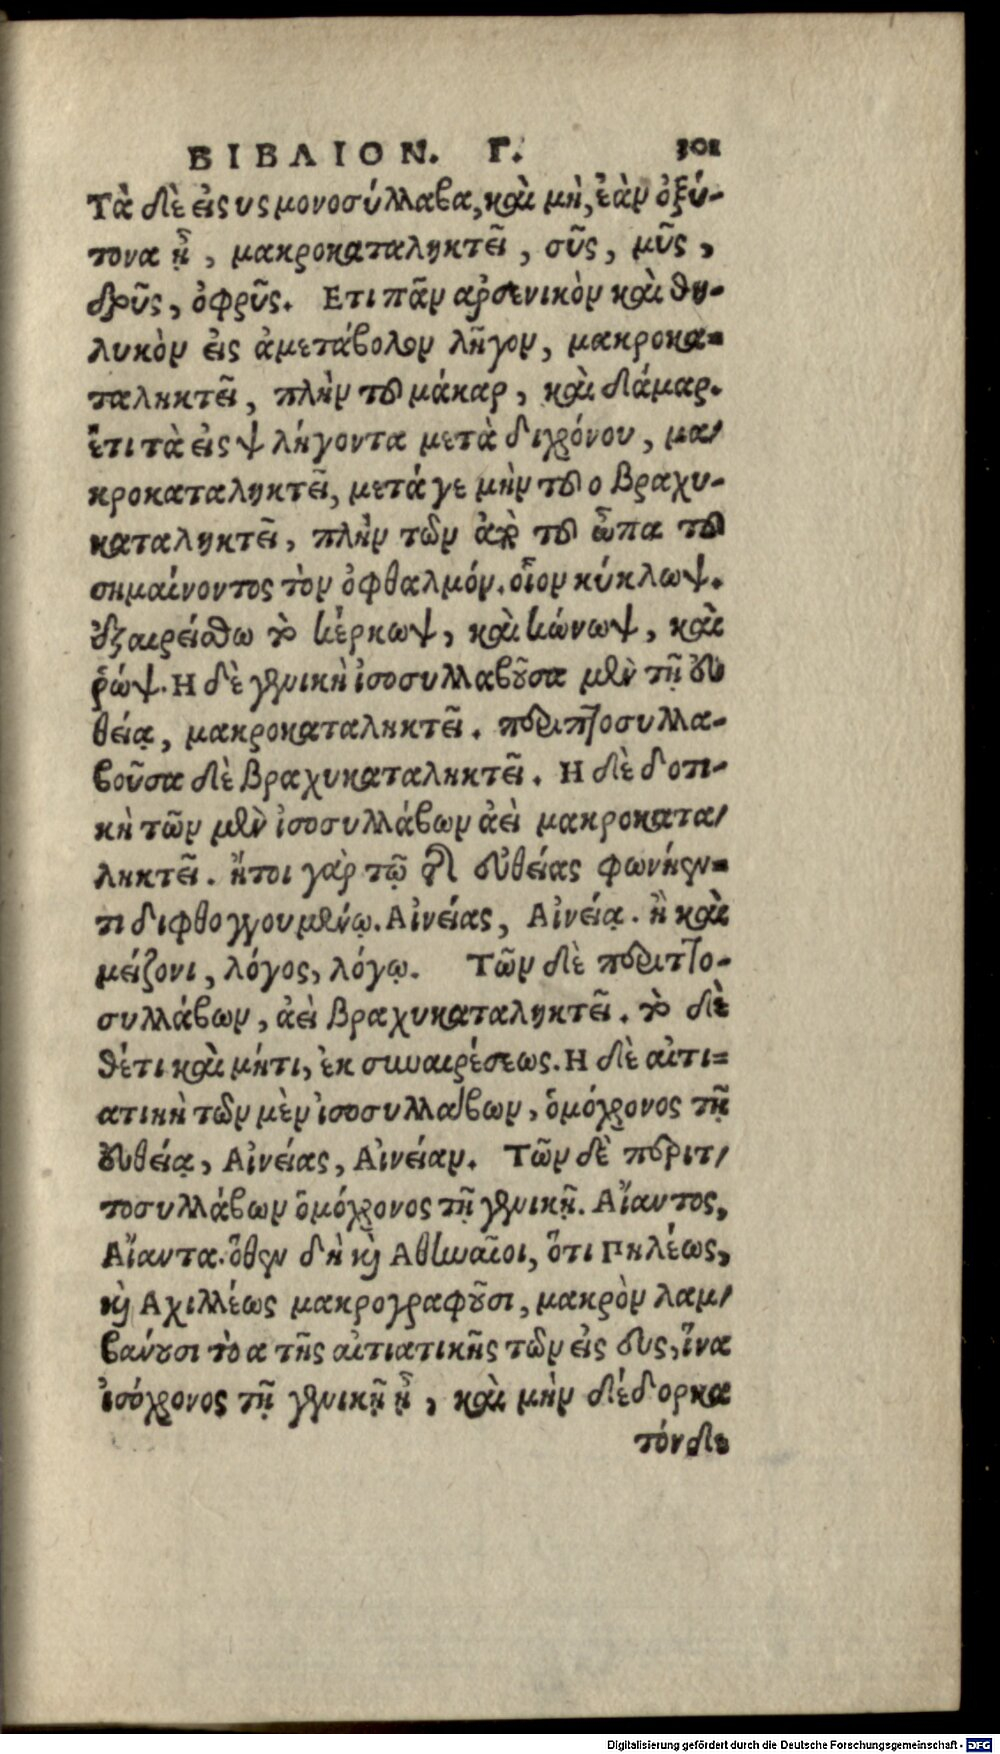 ΒΙΒΛΙΟΝ. Γ. 301
Τὰ δὲ εἰς υς μονοσύλλαβα, καὶ μὴ, ἐὰν ὀξύ-
τονα ᾖ, μακροκαταληκτεῖ, σῦς, μῦς,
δρῦς, ὀφρῦς. Ετι πᾶν αρσενικὸν καὶ θη-
λυκὸν εἰς ἀμετάβολον λῆγον, μακροκα-
ταληκτεῖ, πλὴν τοῦ μάκαρ, καὶ δάμαρ.
ἔτι τὰ εἰς ψ λήγοντα μετὰ διχρόνου, μα-
κροκαταληκτεῖ, μετά γε μὴν τοῦ ο βραχυ-
καταληκτεῖ, πλὴν τῶν ἀπὸ τοῦ ὦπα τοῦ
σημαίνοντος τὸν ὀφθαλμόν. οἷον κύκλωψ.
ἐξαιρείσθω τὸ κέρκωψ, καὶ κώνωψ, καὶ
ῥώψ. Η δὲ γενικὴ ἰσοσυλλαβοῦσα μὲν τῇ εὐ
θείᾳ, μακροκαταληκτεῖ. περιττοσυλλα-
βοῦσα δὲ βραχυκαταληκτεῖ. Η δὲ δοτι-
κὴ τῶν μὲν ἰσοσυλλάβων ἀεὶ μακροκατα-
ληκτεῖ. ἤτοι γὰρ τῷ τῆς εὐθείας φωνήεν-
τι διφθογγουμένῳ. Αἰνείας, Αἰνείᾳ. ἢ καὶ
μείζονι, λόγος, λόγῳ. Τῶν δὲ περιττο-
συλλάβων, ἀεὶ βραχυκαταληκτεῖ. τὸ δὲ
θέτι καὶ μήτι, ἐκ συναιρέσεως. Η δὲ αἰτι-
ατικὴ τῶν μὲν ἰσοσυλλάβων, ὁμόχρονος τῇ
εὐθείᾳ, Αἰνείας, Αἰνείαν. Τῶν δὲ περιτ-
τοσυλλάβων ὁμόχρονος τῇ γενικῇ. Αἴαντος,
Αἴαντα. ὅθεν δὴ καὶ Αθηναῖοι, ὅτι Πηλέως,
καὶ Αχιλλέως μακρογραφοῦσι, μακρὸν λαμ-
βάνουσι τὸ α τῆς αἰτιατικῆς τῶν εἰς ευς, ἵνα
ἰσόχρονος τῇ γενικῇ ᾖ, καὶ μὴν δέδορκα
τόνδε